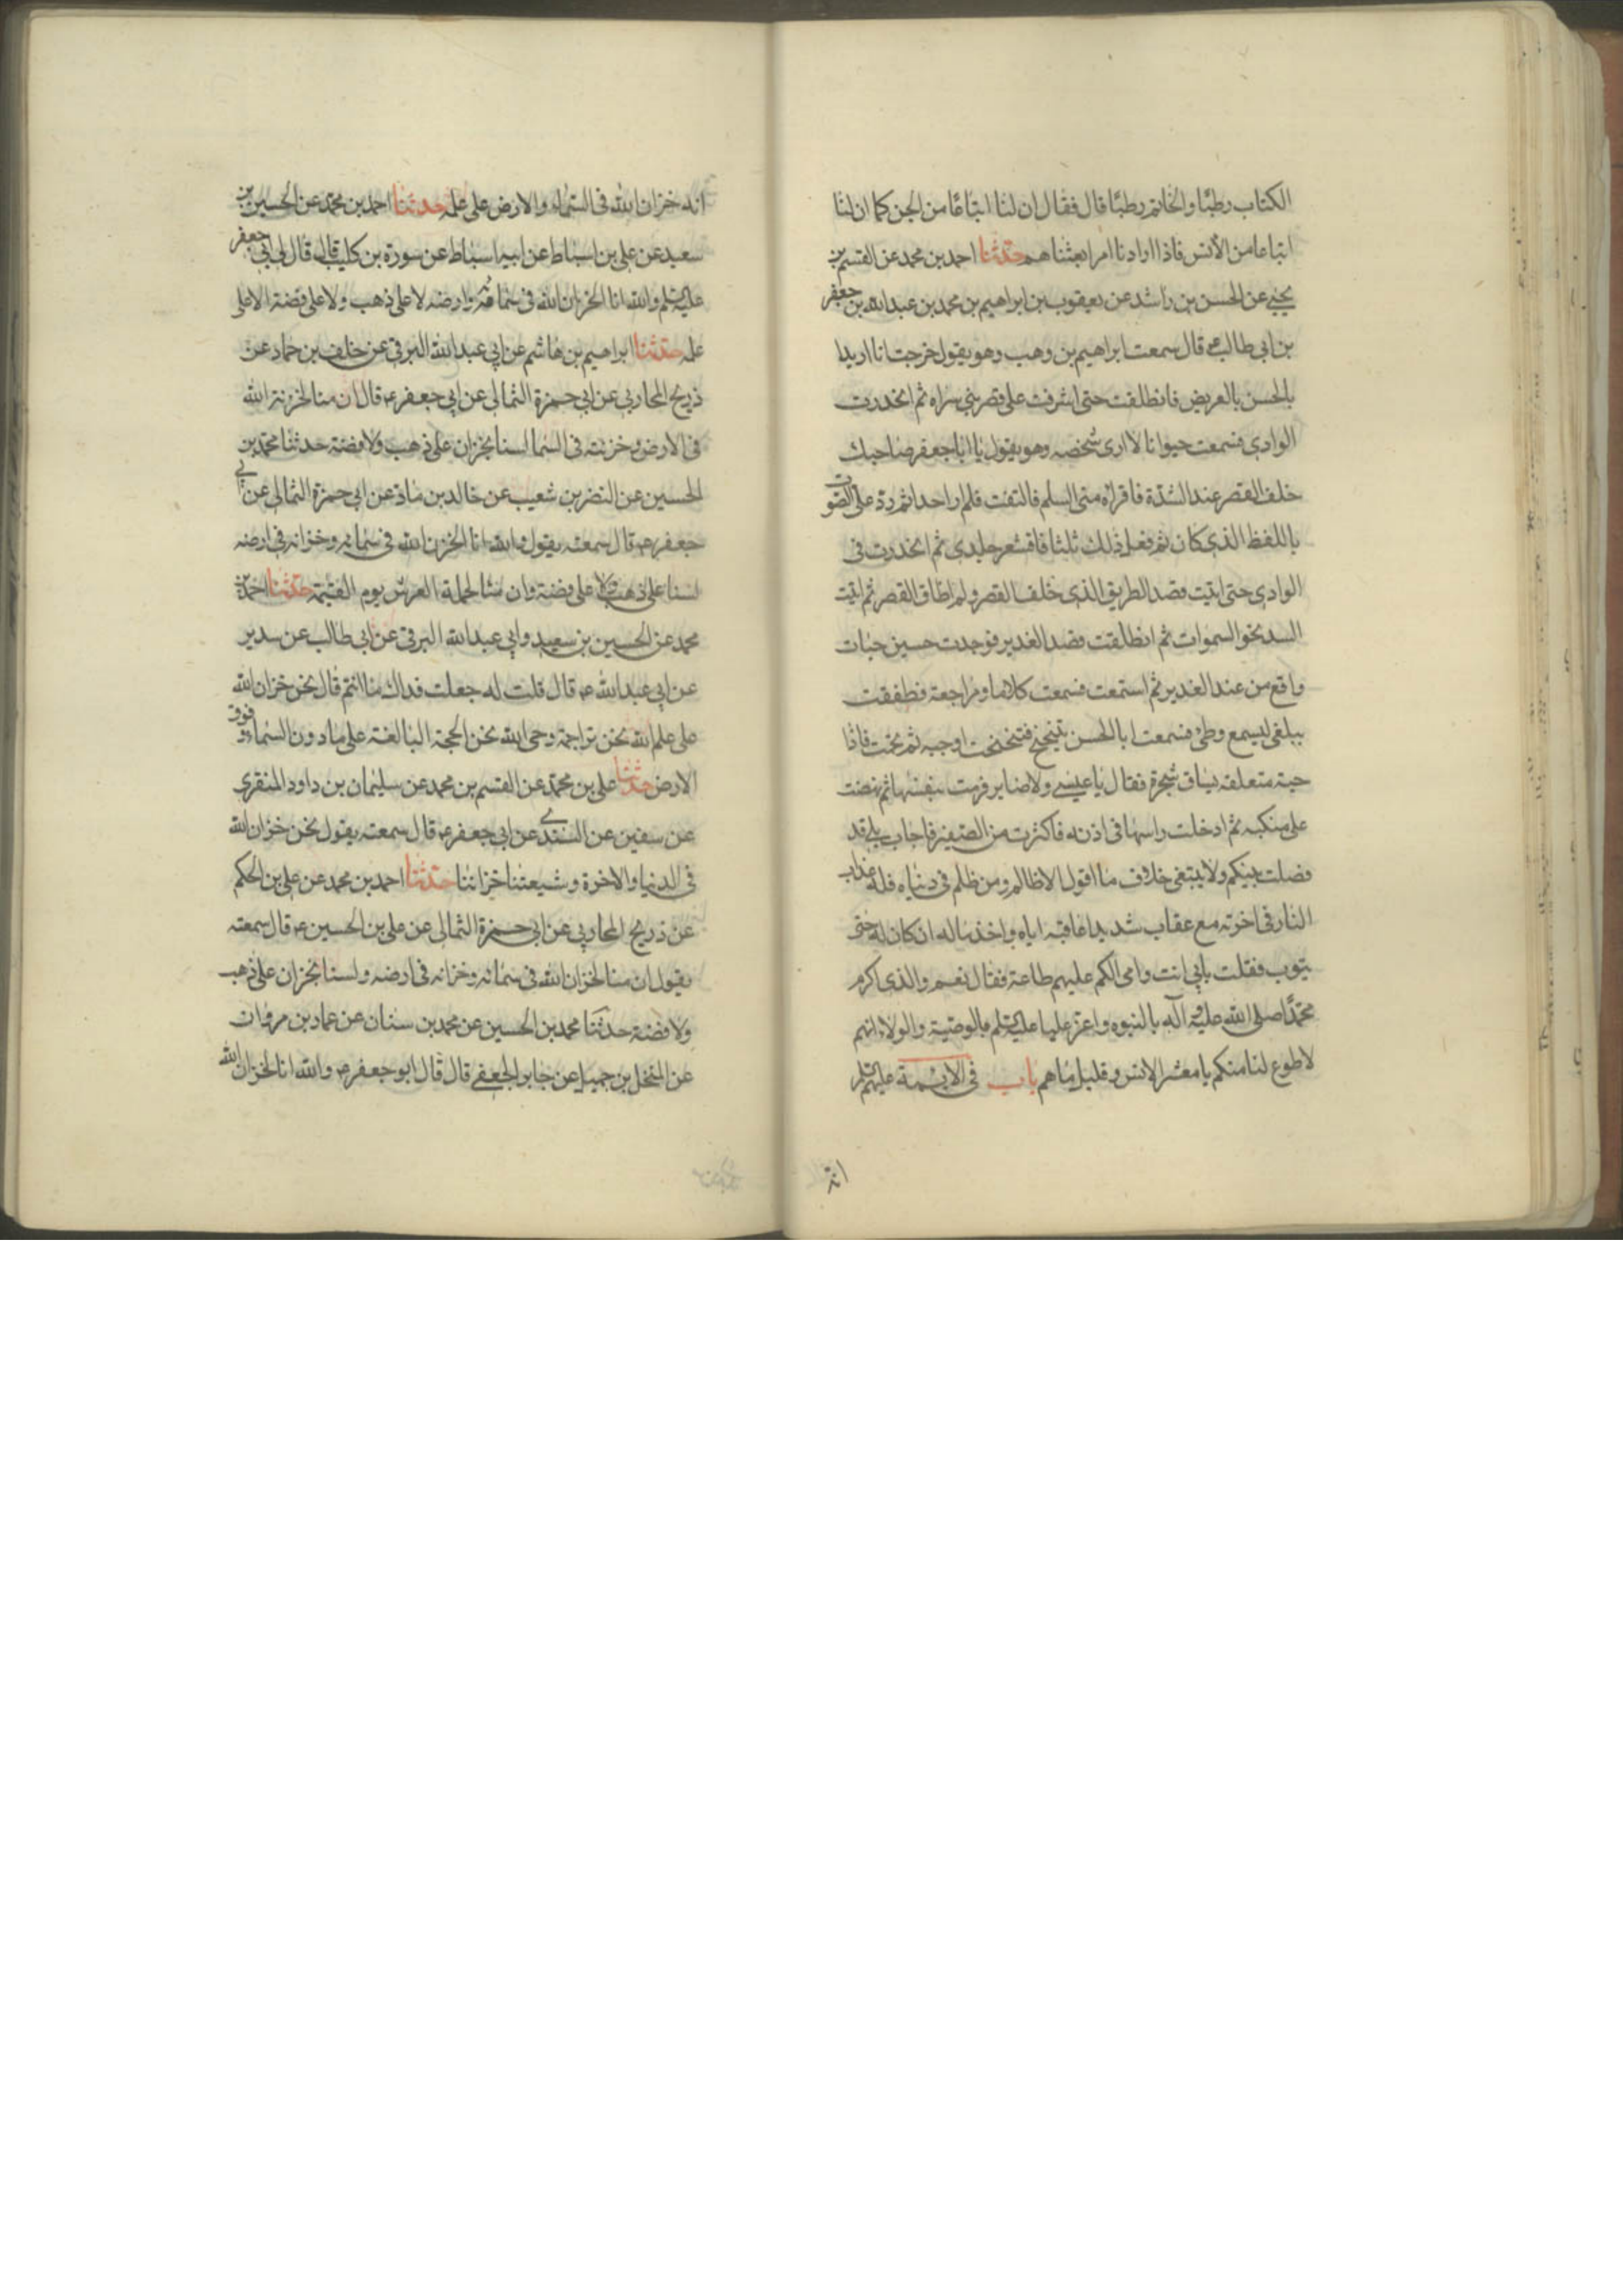 الكتاب رطبا والخاتم رطبا قال فقال ان لنا اتباعا من الجن كما ان لنا
اتباعا من الأنس فاذا ارادنا امرا بعثناهم حدثنا احمد بن محمد عن القسم بن
يحيى عن الحسن بن راشد عن يعقوب بن ابراهيم بن محمد بن عبد الله بن جعفر
بن ابي طالب قال سمعت ابراهيم بن وهب وهو يقول خرجت انا اريد ا
بالحسن بالعريض فانطلقت حتى اشرفت على قصر بني سراه ثم انحدرت
الوادي فسمعت حيوانا لا ارى شخصه وهو يقول يا ابا جعفر صاحبك
خلف القصر عند السدة فاقراه منى السلم فالتفت فلم ار احدا ثم رد على الصوت
باللفظ الذي كان ثم فعل ذلك ثلثا فاقشعر جلدي ثم انحدرت في
الوادي حتى اتيت قصد الطريق الذي خلف القصر ولم اطاق القصر ثم اتيت
السد نحو السموات ثم انطلقت قصد الغدير فوجدت حسين حيات
واقع من عند الغدير ثم استمعت فسمعت كلاما ومراجعة فطفقت
بنعلى ليسمع وطئ فسمعت ابا الحسن يتنحنح فتنحنحت اوجبه ثم نحت فاذا
حية متعلقة بساق شجرة فقال يا عيسى ولا ضاير فرمت بنفسها ثم نهضت
على منكبه ثم ادخلت راسها في اذنه فاكثرت من الصفير فاجاب بلى قد
فصلت بينكم ولا يبتغى خلاف ما اقول الا ظالم ومن ظلم في دنياه فله عذاب
النار في اخرته مع عقاب شديد اعاقبه اياه واخذ ماله ان كان له حتى
يتوب فقلت بابي انت وامي الكم عليهم طاعة فقال نعم والذي اكرم
محمدا صلى الله عليه وآله بالنبوه واعز عليا عليه السلم بالوصية والولاء انهم
لاطوع لنا منكم يا معشر الانس وقليل ما هم باب في الايمة عليهم السلم
انه
انه خزان الله في السماء والارض على علمه حدثنا احمد بن محمد عن الحسين بن
سعيد عن علي بن اسباط عن ابيه اسباط عن سورة بن كليب قال قال لي ابي جعفر
عليه السلم والله انا لخزان الله في سمائه وارضه لا على ذهب ولا على فضة الا على
علمه حدثنا ابراهيم بن هاشم عن ابي عبد الله البرقي عن خلف بن حماد عن
ذريح المحاربي عن ابي حمزة الثمالي عن ابي جعفر ع قال ان منا لخزنة الله
في الارض وخزنته في السما لسنا بخزان على ذهب ولا فضة حدثنا محمد بن
الحسين عن النضر بن شعيب عن خالد بن ماد عن ابي حمزة الثمالي عن ابي
جعفر ع قال سمعته يقول والله انا لخزن الله في سمائه وخزانه في ارضه
لسنا على ذهب ولا على فضة وان منا لحملة العرش يوم القيمة حدثنا احمد بن
محمد عن الحسين بن سعيد وابي عبد الله البرقي عن ابي طالب عن سدير
عن ابي عبد الله ع قال قلت له جعلت فداك ما انتم قال نحن خزان الله
على علم الله نحن تراجمة وحي الله نحن الحجة البالغة على ما دون السماء وفوق
الارض حدثنا علي بن محمد عن القسم بن محمد عن سليمان بن داود المنقرى
عن سفين عن السندي عن ابي جعفر ع قال سمعته يقول نحن خزان الله
في الدنيا والاخرة وشيعتنا خزاننا حدثنا احمد بن محمد عن علي بن الحكم
عن ذريح المحاربي عن ابي حمزة الثمالي عن علي بن الحسين ع قال سمعته
يقول ان منا لخزان الله في سمائه وخزانه في ارضه ولسنا بخزان على ذهب
ولا فضة حدثنا محمد بن الحسين عن محمد بن سنان عن عمار بن مروان
عن المنخل بن جميل عن جابر الجعفي قال قال ابو جعفر ع والله انا لخزان الله